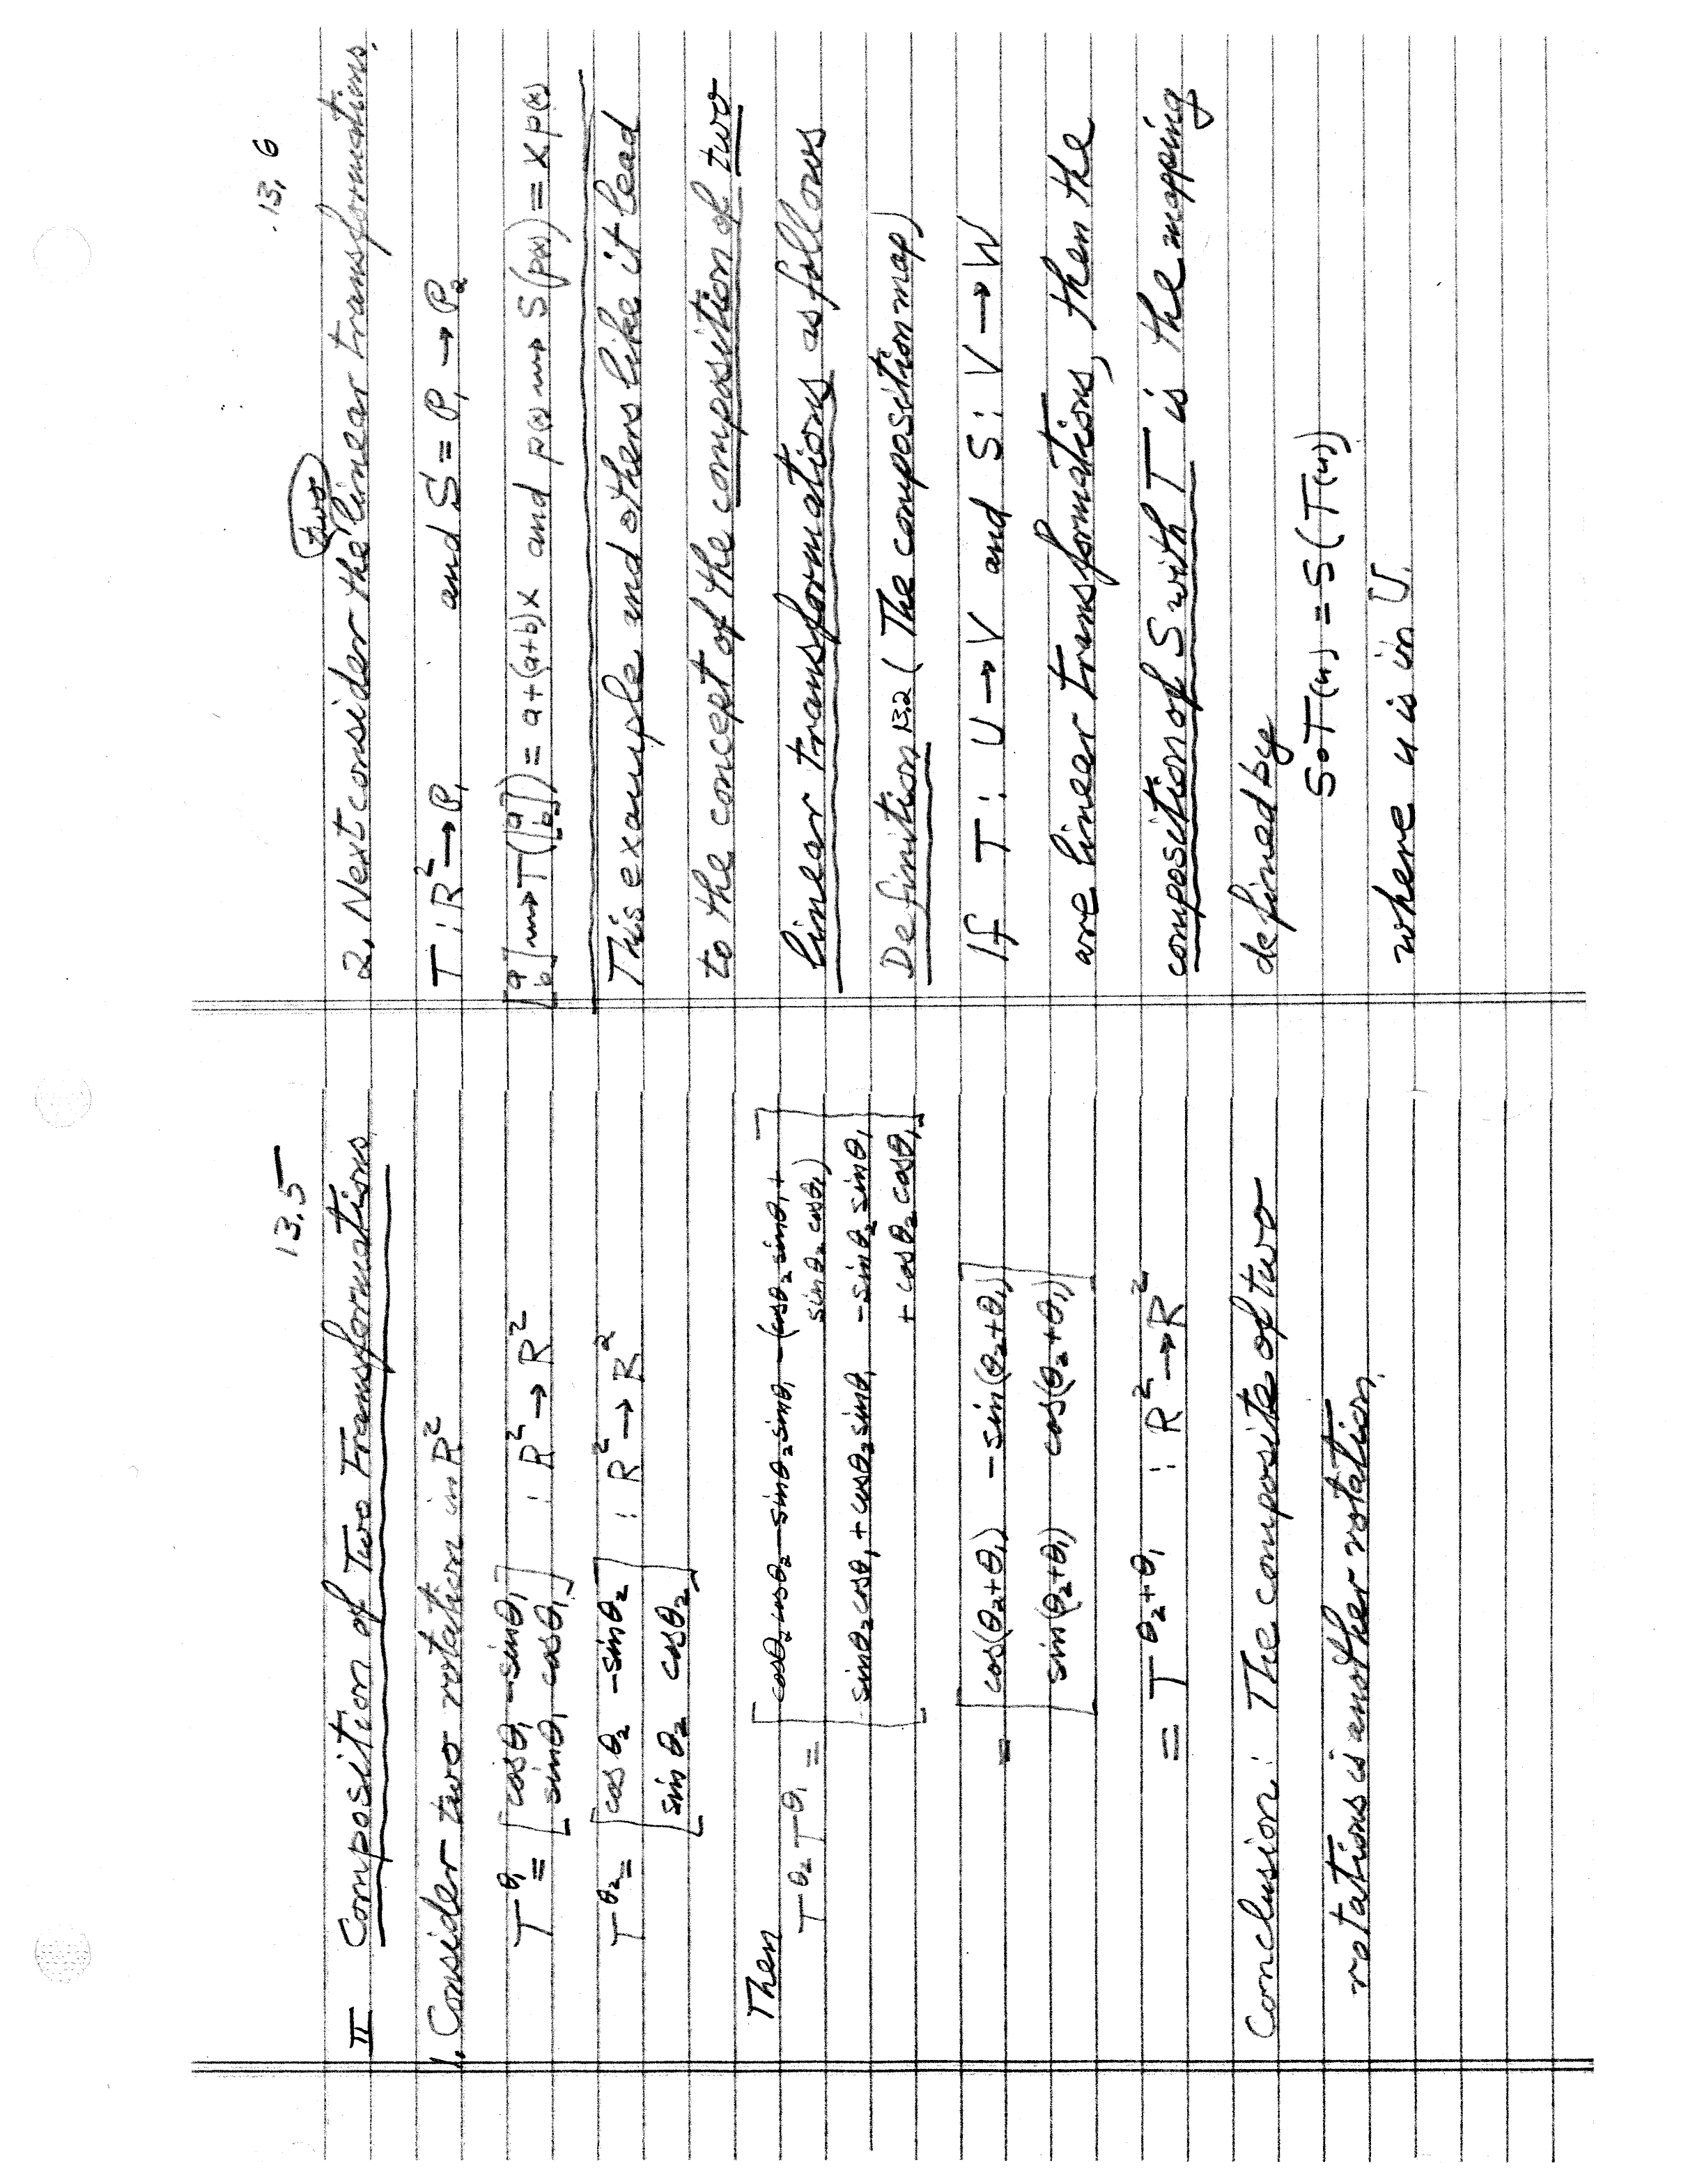 13.5
II Composition of Two Transformations
1. Consider two rotation in R²
T^θ₁ = [cosθ₁ -sinθ₁
sinθ₁ cosθ₁] : R² → R²
T^θ₂ = [cosθ₂ -sinθ₂
sinθ₂ cosθ₂] : R² → R²
Then
T^θ₂ T^θ₁ = [cosθ₂ cosθ₂ - sinθ₂ sinθ₁ -(cosθ₂ sinθ₁ +
sinθ₂ cosθ₁)
sinθ₂ cosθ₁ + cosθ₂ sinθ₁ -sinθ₂ sinθ₁
+ cosθ₂ cosθ₁]
= [cos(θ₂+θ₁) -sin(θ₂+θ₁)
sin(θ₂+θ₁) cos(θ₂+θ₁)]
= T^θ₂+θ₁ : R² → R²
Conclusion: The composite of two
rotations is another rotation.
13.6
two
2. Next consider the linear transformations.
T : R² → P₁ and S = P₁ → P₂
[a b] ⇝ T([a b]) = a+(a+b)x and p(x) ⇝ S(p(x)) = x p(x)
This example and others like it lead
to the concept of the composition of two
linear transformations as follows
Definition 13.2 (The composition map)
If T : U → V and S : V → W
are linear transformations, then the
composition of S with T is the mapping
defined by
S∘T(u) = S(T(u))
where u is in U.